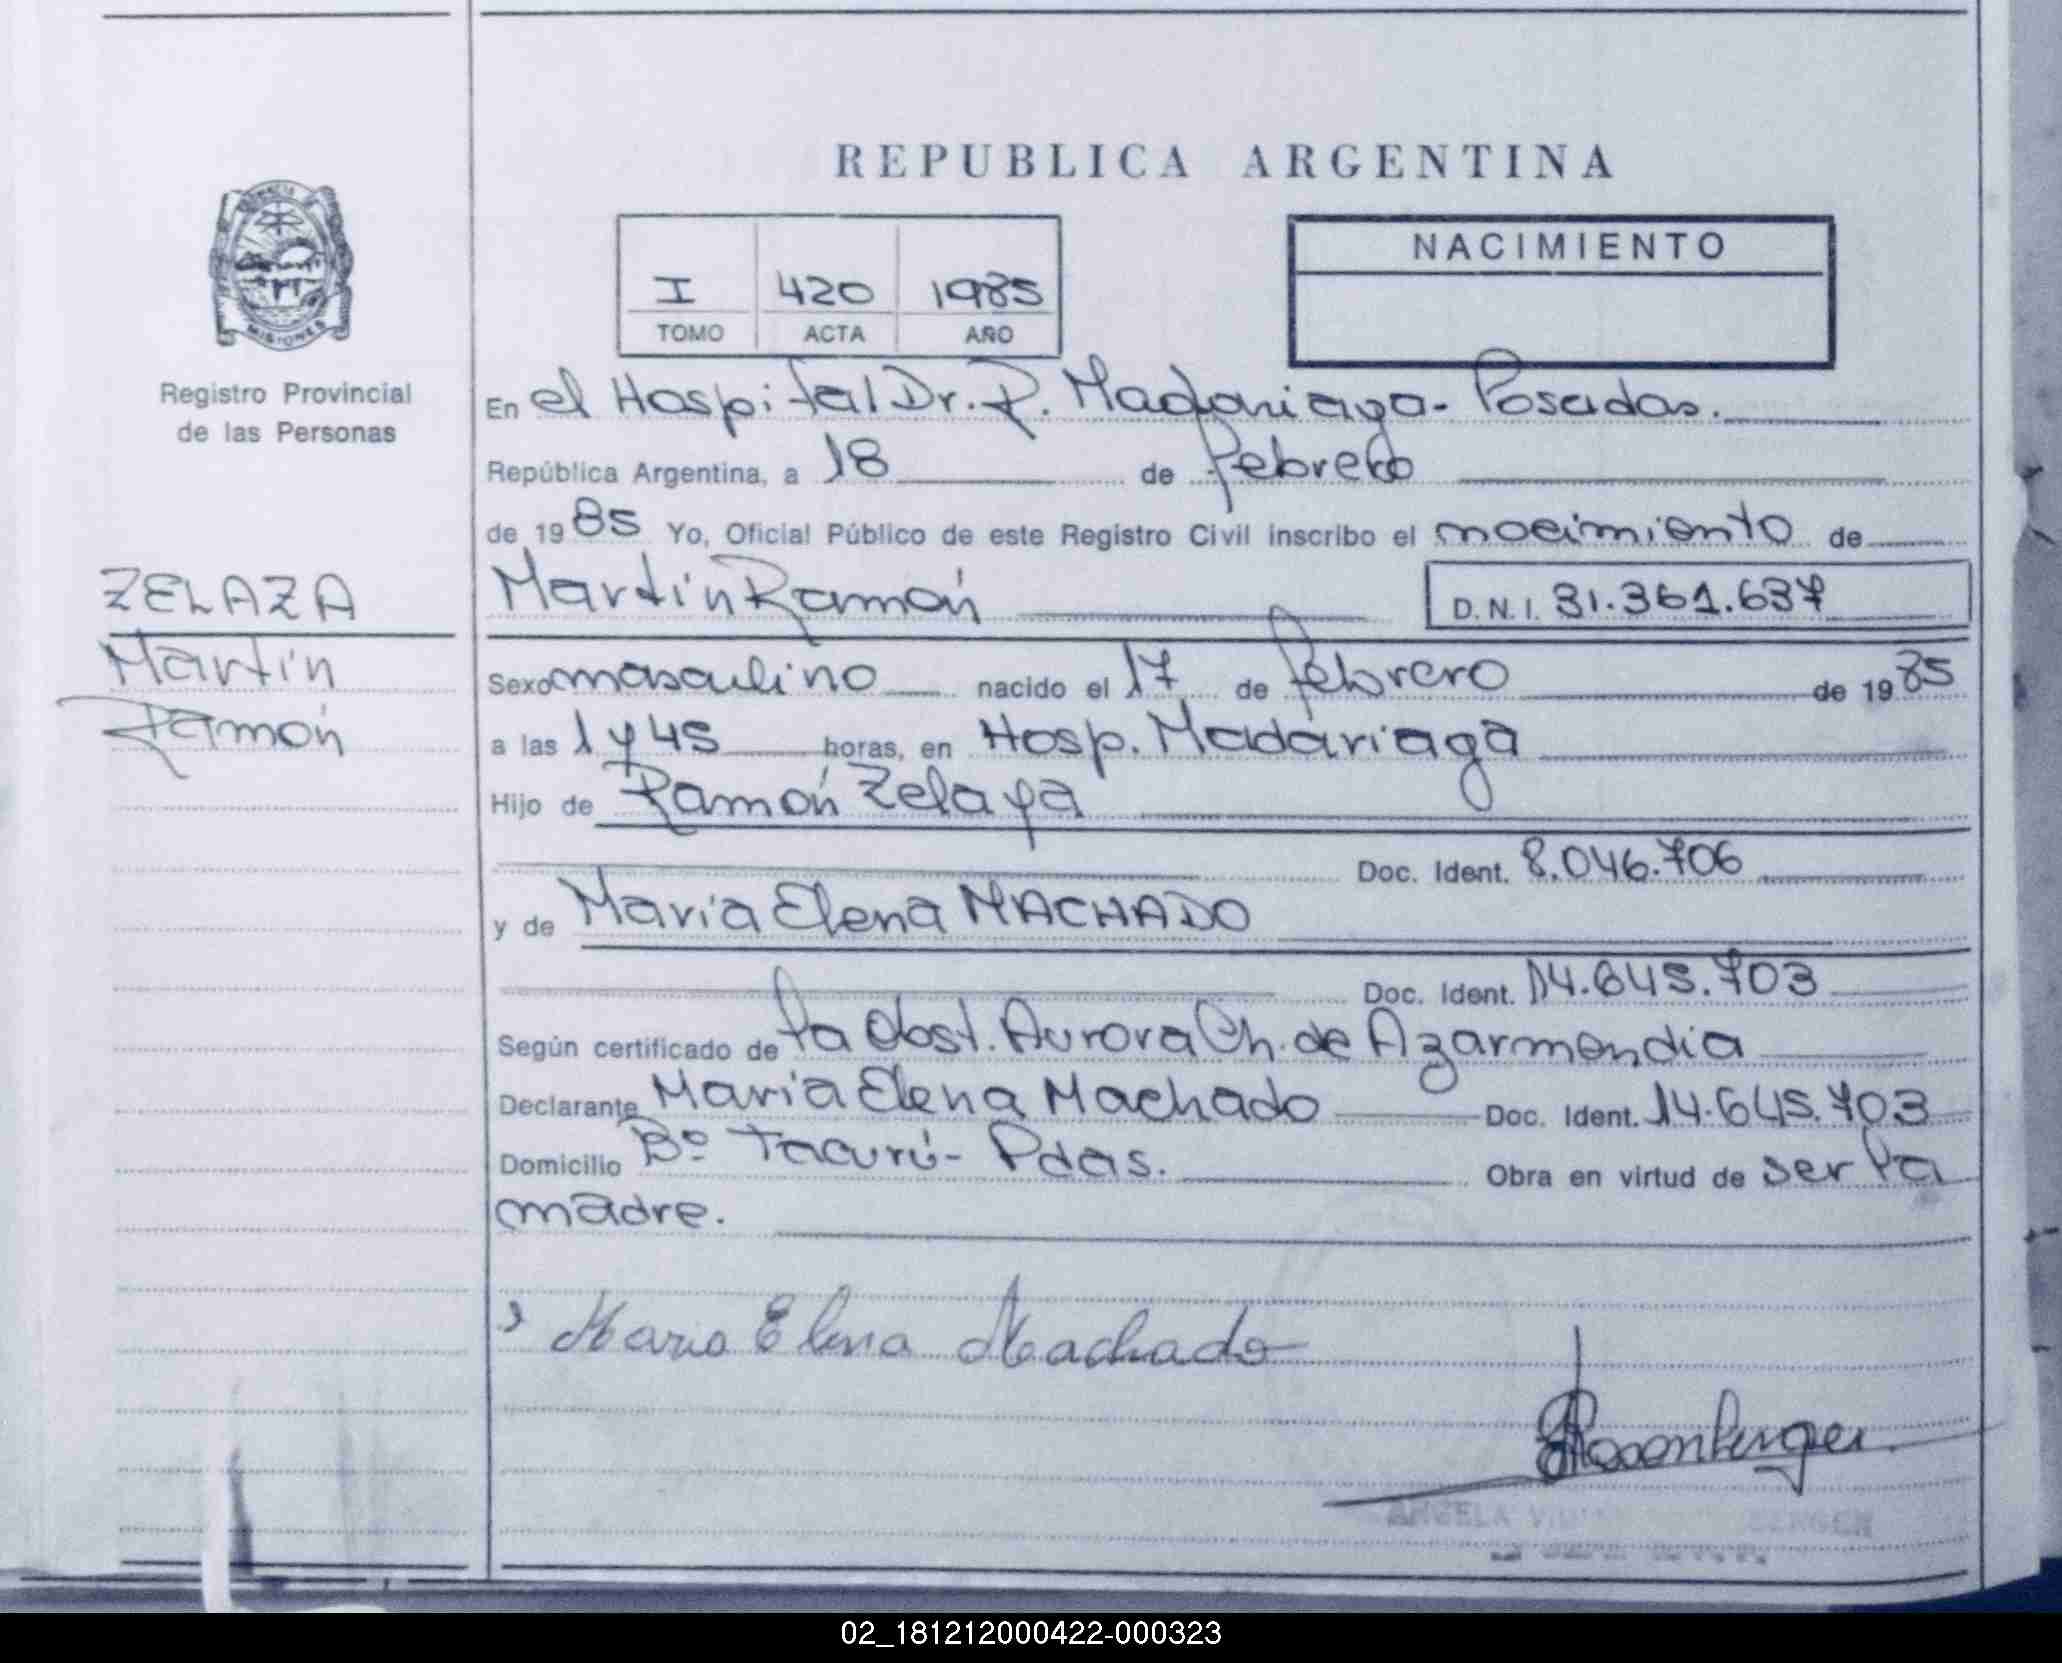 REPUBLICA ARGENTINA
NACIMIENTO
I 420 1985
TOMO ACTA AÑO
MISIONES
Registro Provincial
de las Personas
ZELAZA
Martín
Ramón
En el Hospital Dr. R. Madariaga - Posadas.
República Argentina, a 18 de febrero
de 1985 Yo, Oficial Público de este Registro Civil inscribo el nacimiento de
Martín Ramón D.N.I. 31.361.637
Sexo masculino nacido el 17 de febrero de 1985
a las 1 y 45 horas, en Hosp. Madariaga
Hijo de Ramón Zelaya
Doc. Ident. 8.046.706
y de María Elena MACHADO
Doc. Ident. 14.645.703
Según certificado de la Obst. Aurora Ch. de Azarmendia
Declarante María Elena Machado Doc. Ident. 14.645.703
Domicilio Bº Tacurú - Pdas. Obra en virtud de ser la
madre.
Maria Elena Machado
Rosenberger
ANGELA
02_181212000422-000323